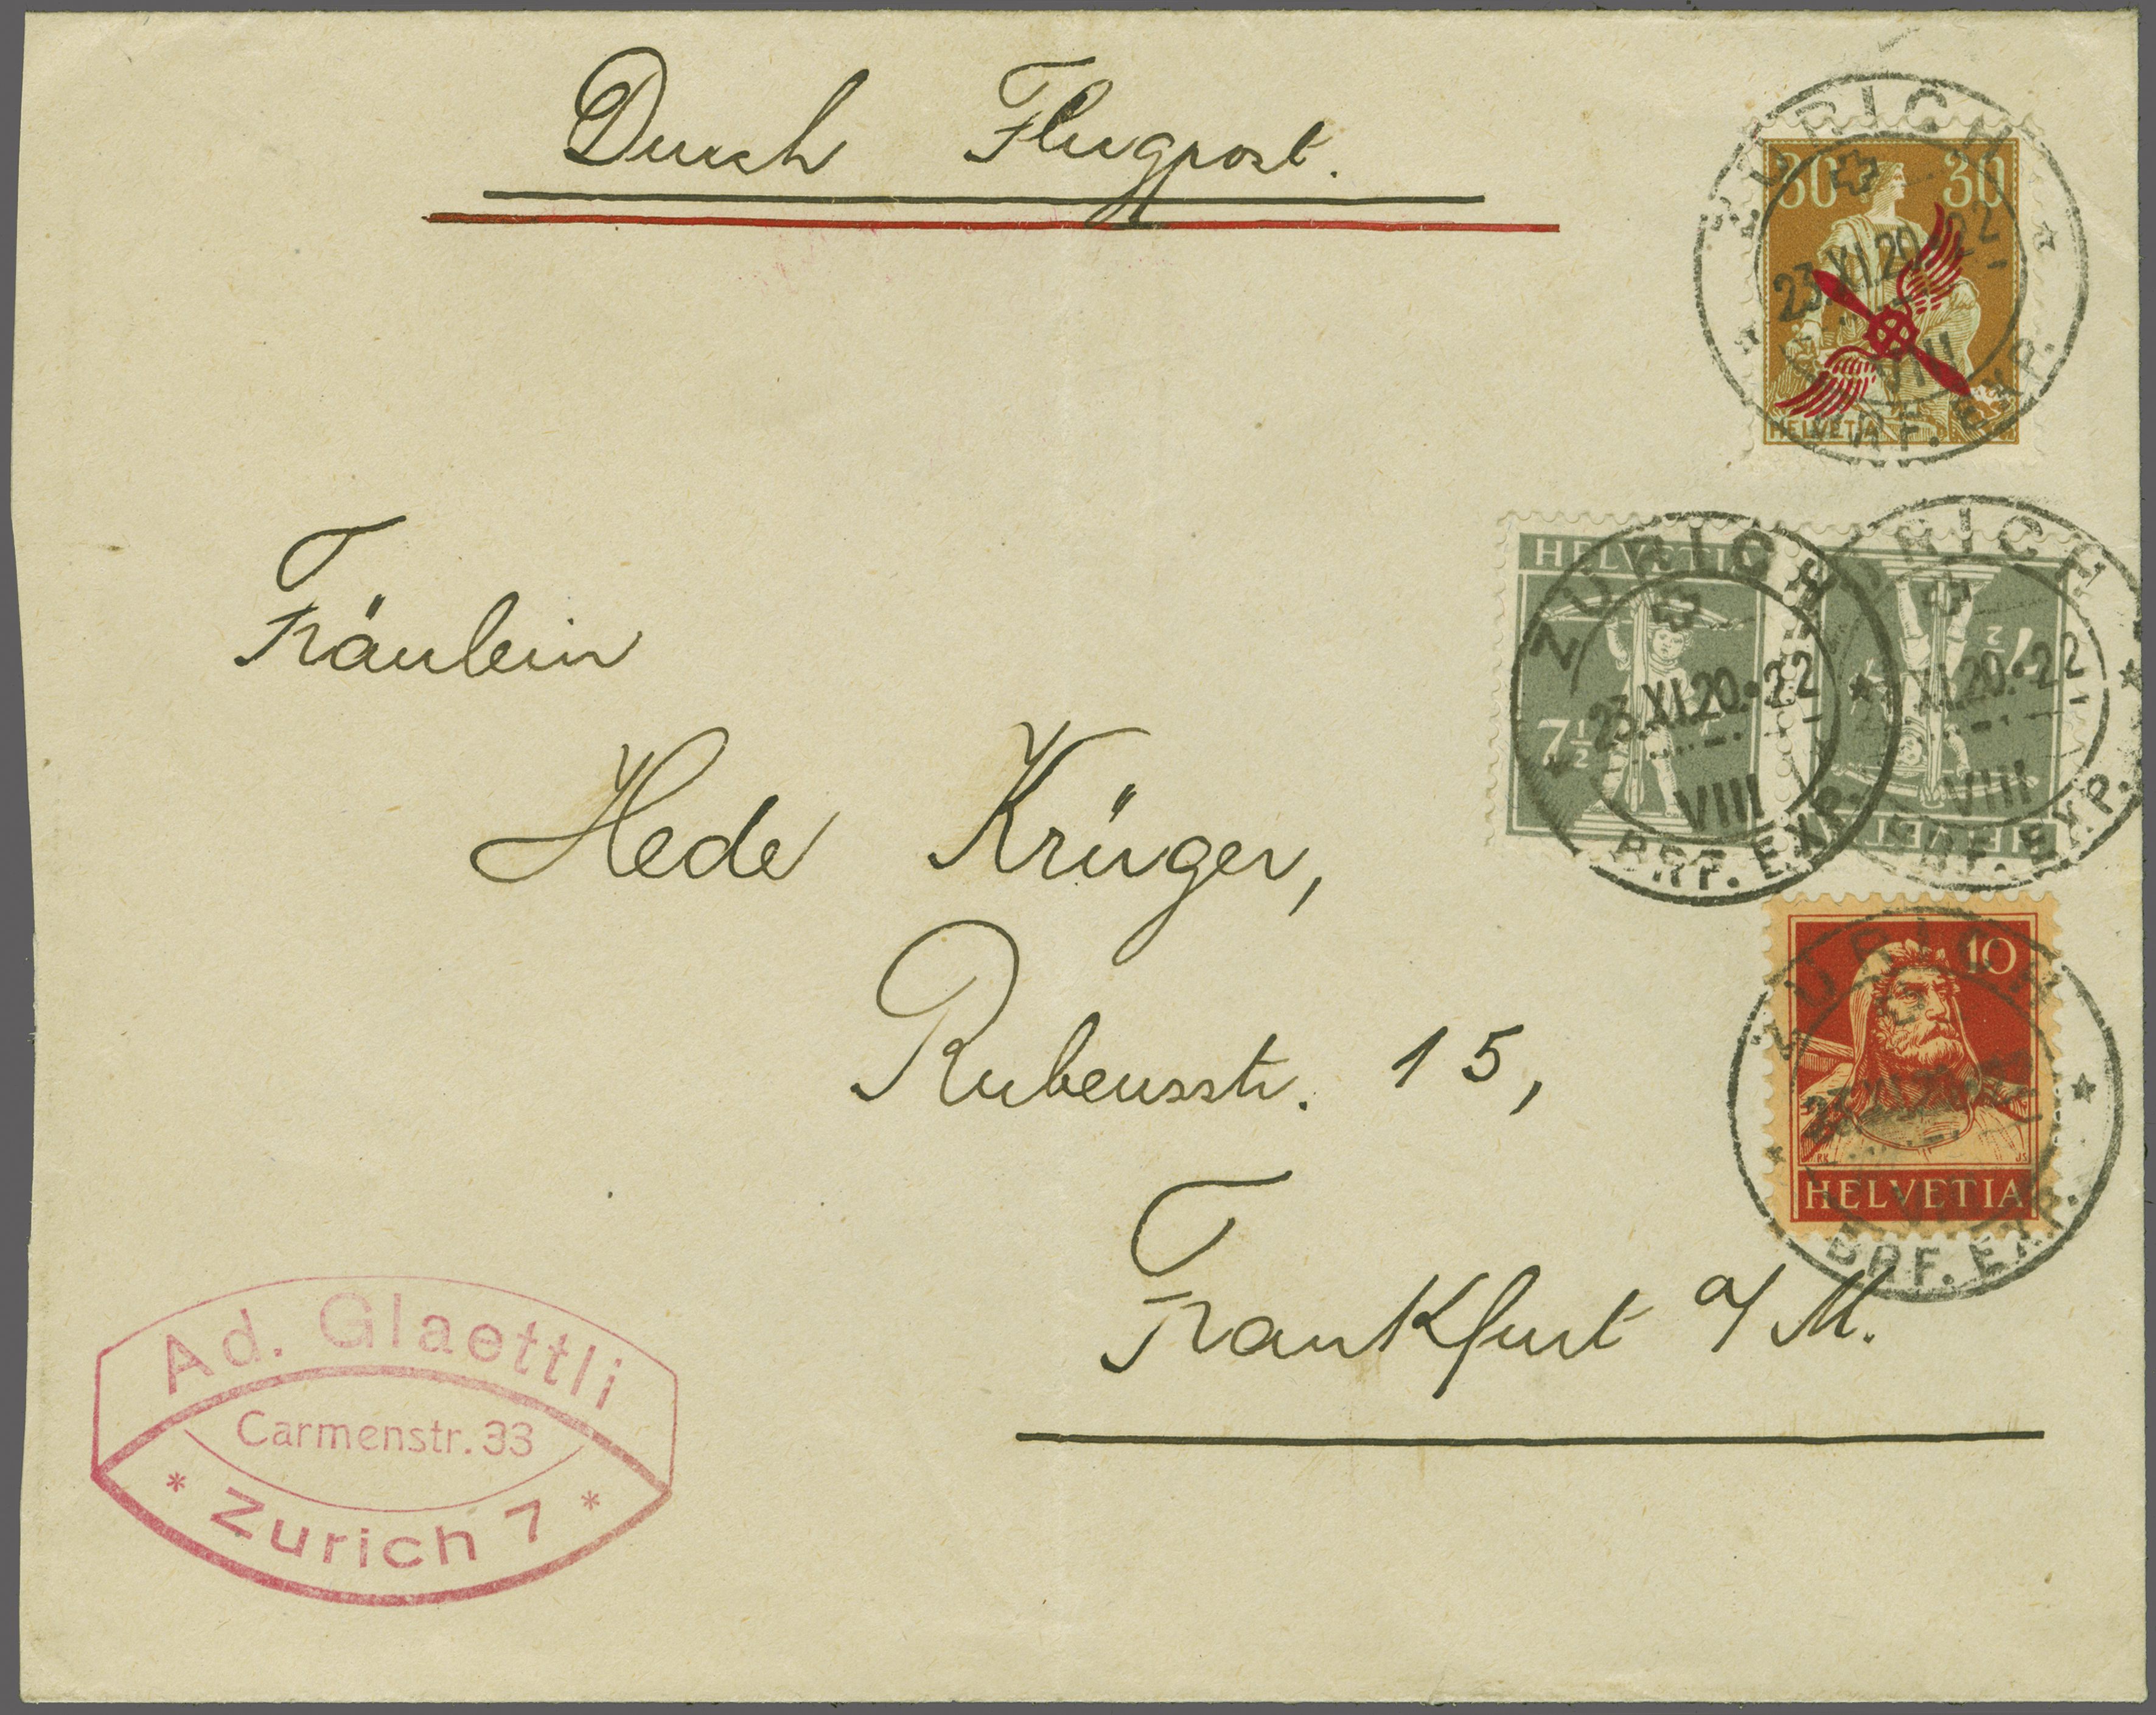 Durch Flugpost.
ZÜRICH
30 30
23.XI.20.-22
VIII
BRF. EXP.
HELVETIA
Fräulein
Hede Krüger,
Rubensstr. 15,
Frankfurt a/M.
HELVETIA
ZÜRICH
7½
23.XI.20.-22
VIII
BRF. EXP.
ZÜRICH
7½
XI.20.-22
VIII
BRF. EXP.
ZÜRICH
10
23.XI.20.
HELVETIA
BRF. EXP.
Ad. Glaettli
Carmenstr. 33
* Zurich 7 *